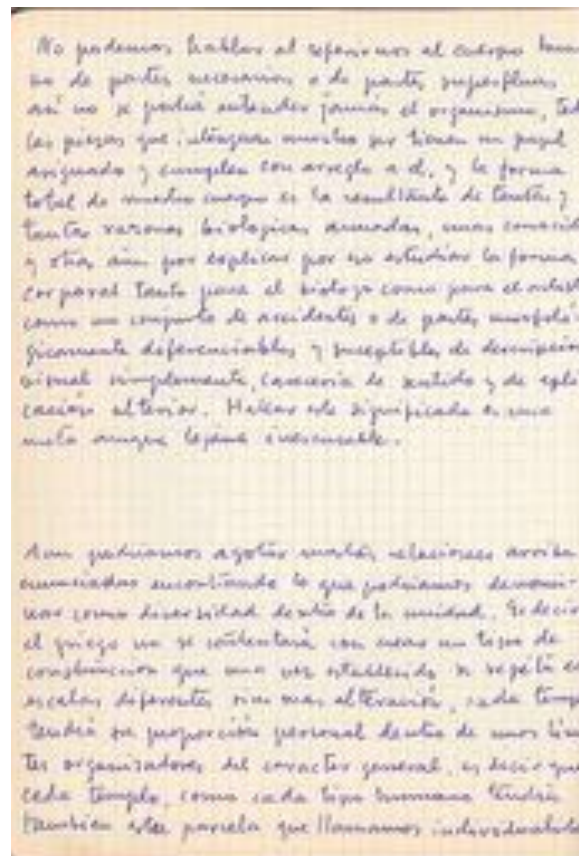 No podemos hablar al referirnos al cuerpo hum
no de partes necesarias o de partes superfluas
así no se podría entender jamás el organismo, tod
las piezas que integran nuestro ser tienen un papel
asignado y cumplen con arreglo a él, y la forma
total de nuestro cuerpo es la resultante de tantas y
tantas razones biológicas aunadas, unas conocid
y otras aún por explicar por eso estudiar la forma
corporal tanto para el biólogo como para el artist
como un conjunto de accidentes o de partes morfoló
gicamente diferenciables y susceptibles de descripción
visual simplemente, carecería de sentido y de apli
cación ulterior. Hallar este significado es una
meta aunque lejana inexcusable.
Aun podríamos agotar relaciones arriba
enunciadas encontrando lo que podríamos denomi-
nar como diversidad dentro de la unidad. Es decir
el griego no se contentará con crear un tipo de
construcción que una vez establecido se repita en
escalas diferentes sin mas alteración, cada temp
tendrá su proporción personal dentro de unos lími
tes organizadores del caracter general, es decir que
cada templo, como cada tipo humano tendrá
tambien esta parcela que llamamos individualida